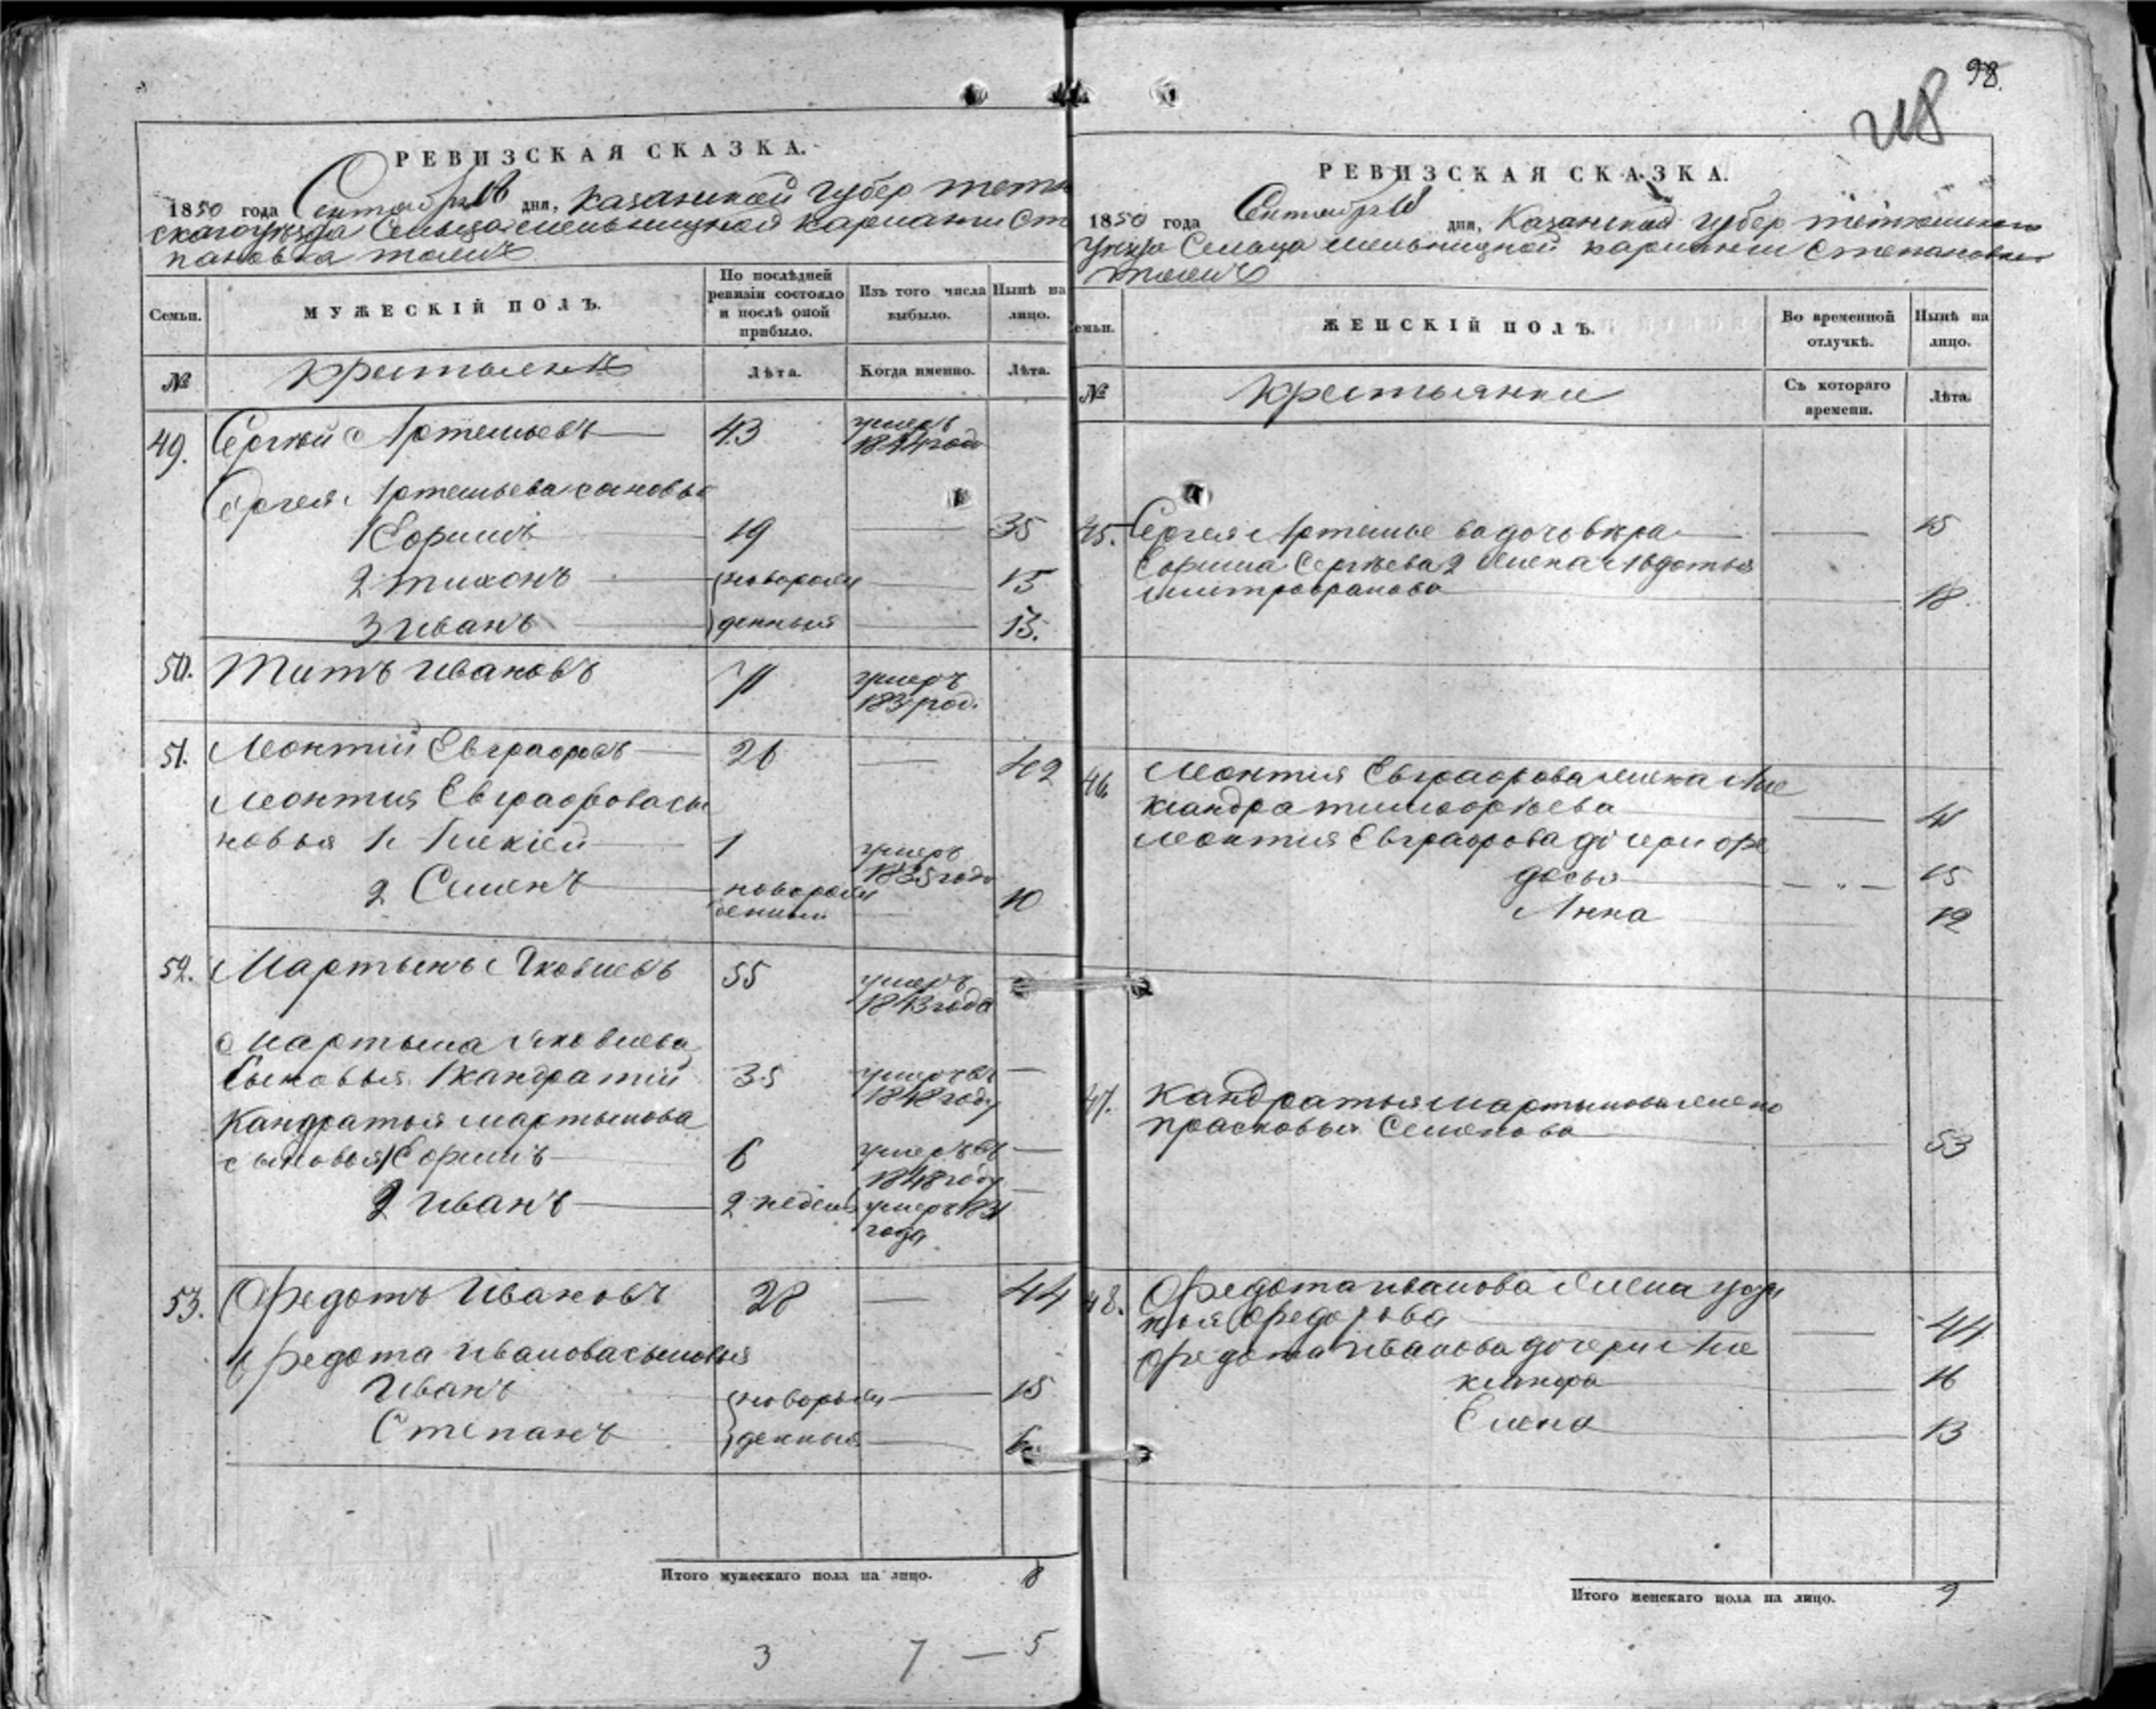 РЕВИЗСКАЯ СКАЗКА.
1850 года Сентября дня, Казанской губер тетю
скаго уезда Сельца мельнишной кармалки Сте
пановка тожъ
Семьи.
МУЖЕСКІЙ ПОЛЪ.
По послѣдней ревизіи состояло и послѣ оной прибыло.
Изъ того числа выбыло.
Нынѣ на лицо.
№
крестьянъ
Лѣта.
Когда именно.
Лѣта.
49. Сергѣй Артемьевъ 43 умеръ 1844 года
Сергея Артемьева сыновья
1 Ефимъ 19 — 35
2 тихонъ новорож — 15
3 Иванъ денныя — 13.
50. Титъ Ивановъ умеръ
51. Леонтий Евграфовъ 26 — 42
Леонтия Евграфова сы
новья 1 Алексей 1 умеръ 1835 года
2 Семенъ новорож денный — 10
52. Мартынъ Яковлевъ 55 умеръ 1843 года —
Мартына Яковлева
сыновья 1 кандратий 35 умеръ въ 1848 году —
Кандратья мартынова
сыновья 1 Ефимъ 6 умеръ въ 1848 году —
2 Иванъ 2 недели умеръ 1831 года —
53. Федотъ Ивановъ 28 — 44
Федота Иванова сыновья
Иванъ новорож — 15
Степанъ денныя — 6
Итого мужескаго пола на лицо. 8
3 7 — 5
98.
218
РЕВИЗСКАЯ СКАЗКА.
1850 года Сентября дня, Казанской губер тетюшскаго
уезда Сельца мельнишной кармалки Степановка
тожъ
Семьи.
ЖЕНСКІЙ ПОЛЪ.
Во временной отлучкѣ.
Нынѣ на лицо.
№
крестьянки
Съ котораго времени.
Лѣта.
45. Сергея Артемьева дочь вѣра — 15
Ефима Сергѣева 2 жена Авдотья
митрофанова 18
46. Леонтия Евграфова жена Але
ксандра тимофѣева — 41
Леонтия Евграфова дочери фе
досья — „ — 15
Анна 12
47. Кандратья мартынова жена
прасковья Семенова 53
48. Федота иванова жена
Федорова — 44
Федота Иванова дочери Але
ксандра — 16
Елена 13
Итого женскаго пола на лицо. 9